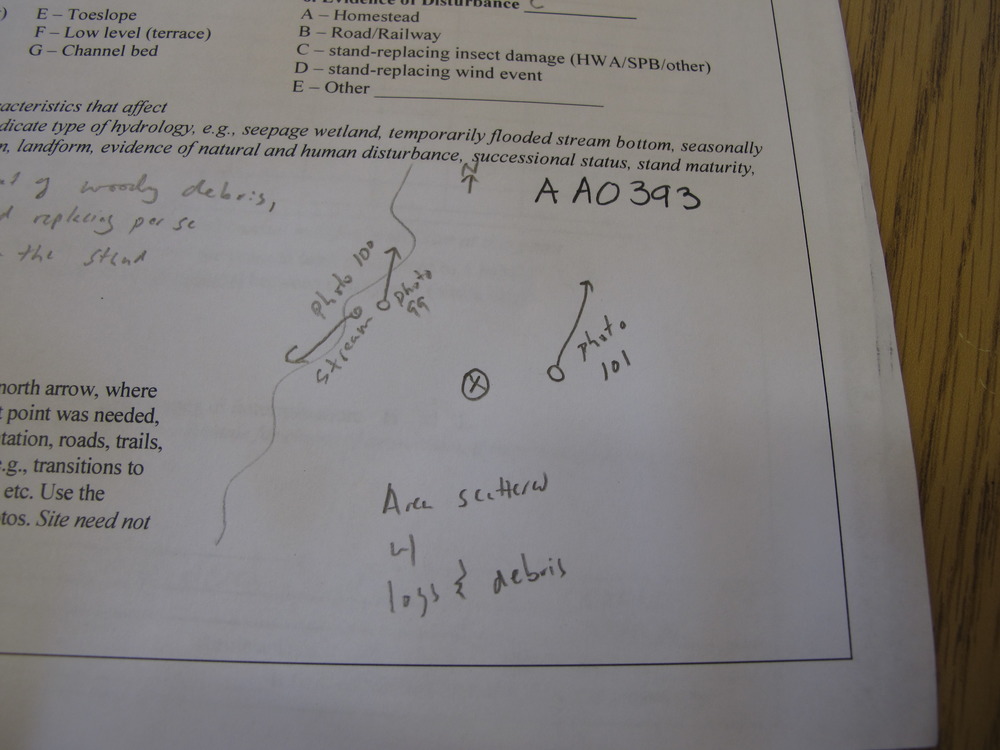 of Evidence of Disturbance C
E – Toeslope
F – Low level (terrace)
G – Channel bed
A – Homestead
B – Road/Railway
C – stand-replacing insect damage (HWA/SPB/other)
D – stand-replacing wind event
E – Other
acteristics that affect
dicate type of hydrology, e.g., seepage wetland, temporarily flooded stream bottom, seasonally
n, landform, evidence of natural and human disturbance, successional status, stand maturity,
of woody debris,
replacing per se
the stand
N
AAO393
Photo 100
photo
99
stream
photo
101
X
Area scattered
w/
logs & debris
north arrow, where
t point was needed,
tation, roads, trails,
e.g., transitions to
etc. Use the
tos. Site need not